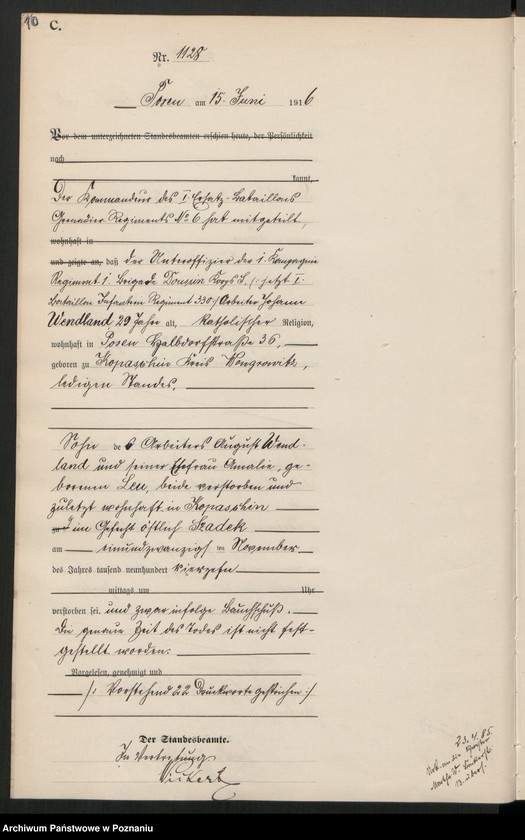 10 C.
Nr. 1128
Posen am 15. Juni 1916
Vor dem unterzeichneten Standesbeamten erschien heute, der Persönlichkeit
nach
kannt,
Der Kommandeur des I Ersatz-Bataillons
Grenadier Regiments No 6 hat mitgeteilt,
wohnhaft in
und zeigte an, daß der Unteroffizier der 1. Kompagnie
Regiment 1 Brigade Korps S. (: jetzt I.
Bataillon Infanterie Regiment 330:) Arbeiter Johann
Wendland 29 Jahre alt, katholischer Religion,
wohnhaft in Posen Halbdorfstraße 36,
geboren zu Kopaschin Kreis Wongrowitz,
ledigen Standes,
Sohn des Arbeiters August Wend-
land und seiner Ehefrau Amalie, ge-
borenen Leu, beide verstorben und
zuletzt wohnhaft in Kopaschin
zu im Gefecht östlich Szadek
am einundzwanzigsten November
des Jahres tausend neunhundert vierzehn
mittags um Uhr
verstorben sei. und zwar infolge Bauchschuß.
Die genaue Zeit des Todes ist nicht fest-
gestellt worden.
Vorgelesen, genehmigt und
/: Vorstehend 22 Druckworte gestrichen :/
Der Standesbeamte.
In Vertretung
Archiwum Państwowe w Poznaniu